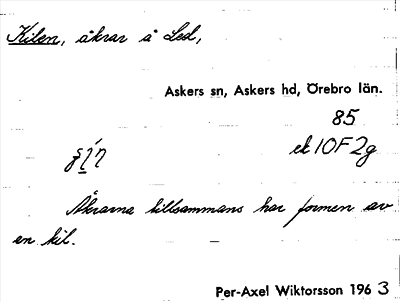 Kilen, åkrar å Led,
Askers sn, Askers hd, Örebro län.
85
ek 10F2g
Åkrarna tillsammans har formen av
en kil.
Per-Axel Wiktorsson 1963